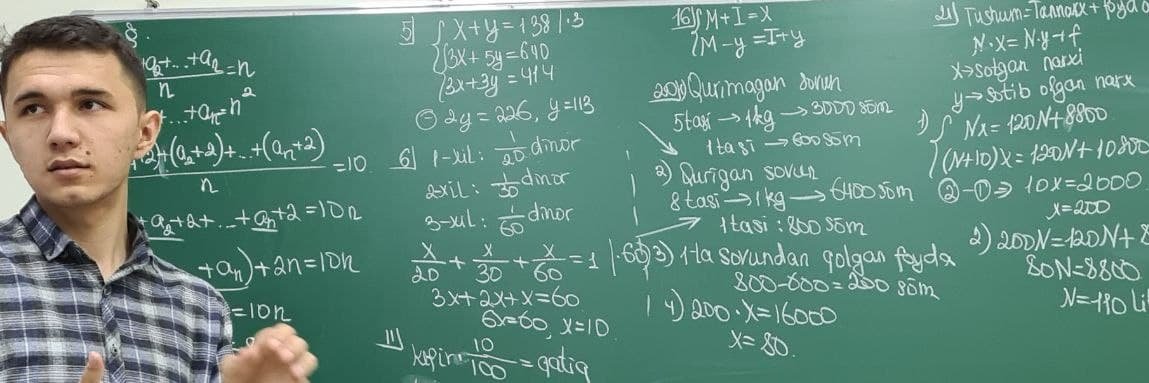 8.
+a₂+...+aₙ/n = n
...+aₙ=n²
+2)+(a₂+2)+...+(aₙ+2)/n = 10
+a₂+2+...+aₙ+2=10n
+aₙ)+2n=10n
=10n
5) { X+y=138 |·3
{ 3x+5y=640
{ 3x+3y=414
⊖ 2y=226, y=113
6) 1-xil: 1/20 dinor
2-xil: 1/30 dinor
3-xil: 1/60 dinor
x/20 + x/30 + x/60 = 1 |·60
3x+2x+x=60
6x=60, x=10
11) 10/100 = qatiq
16) { M+I=X
{ M-y=I+y
20) 1) Qurimagan sovun
5tasi → 1kg → 3000 som
1tasi → 600 som
2) Qurigan sovun
8tasi → 1kg → 6400 som
1tasi: 800 som
3) 1-ta sovundan qolgan foyda
800-600=200 som
4) 200·x=16000
x=80.
21) Tushum=Tannarx+foyda
N·x=N·y+f
x→sotgan narxi
y→sotib olgan narx
1) { Nx=120N+8800
{ (N+10)x=120N+10800
②-①⇒ 10x=2000
x=200
2) 200N=120N+8
80N=8800
N=110 lit